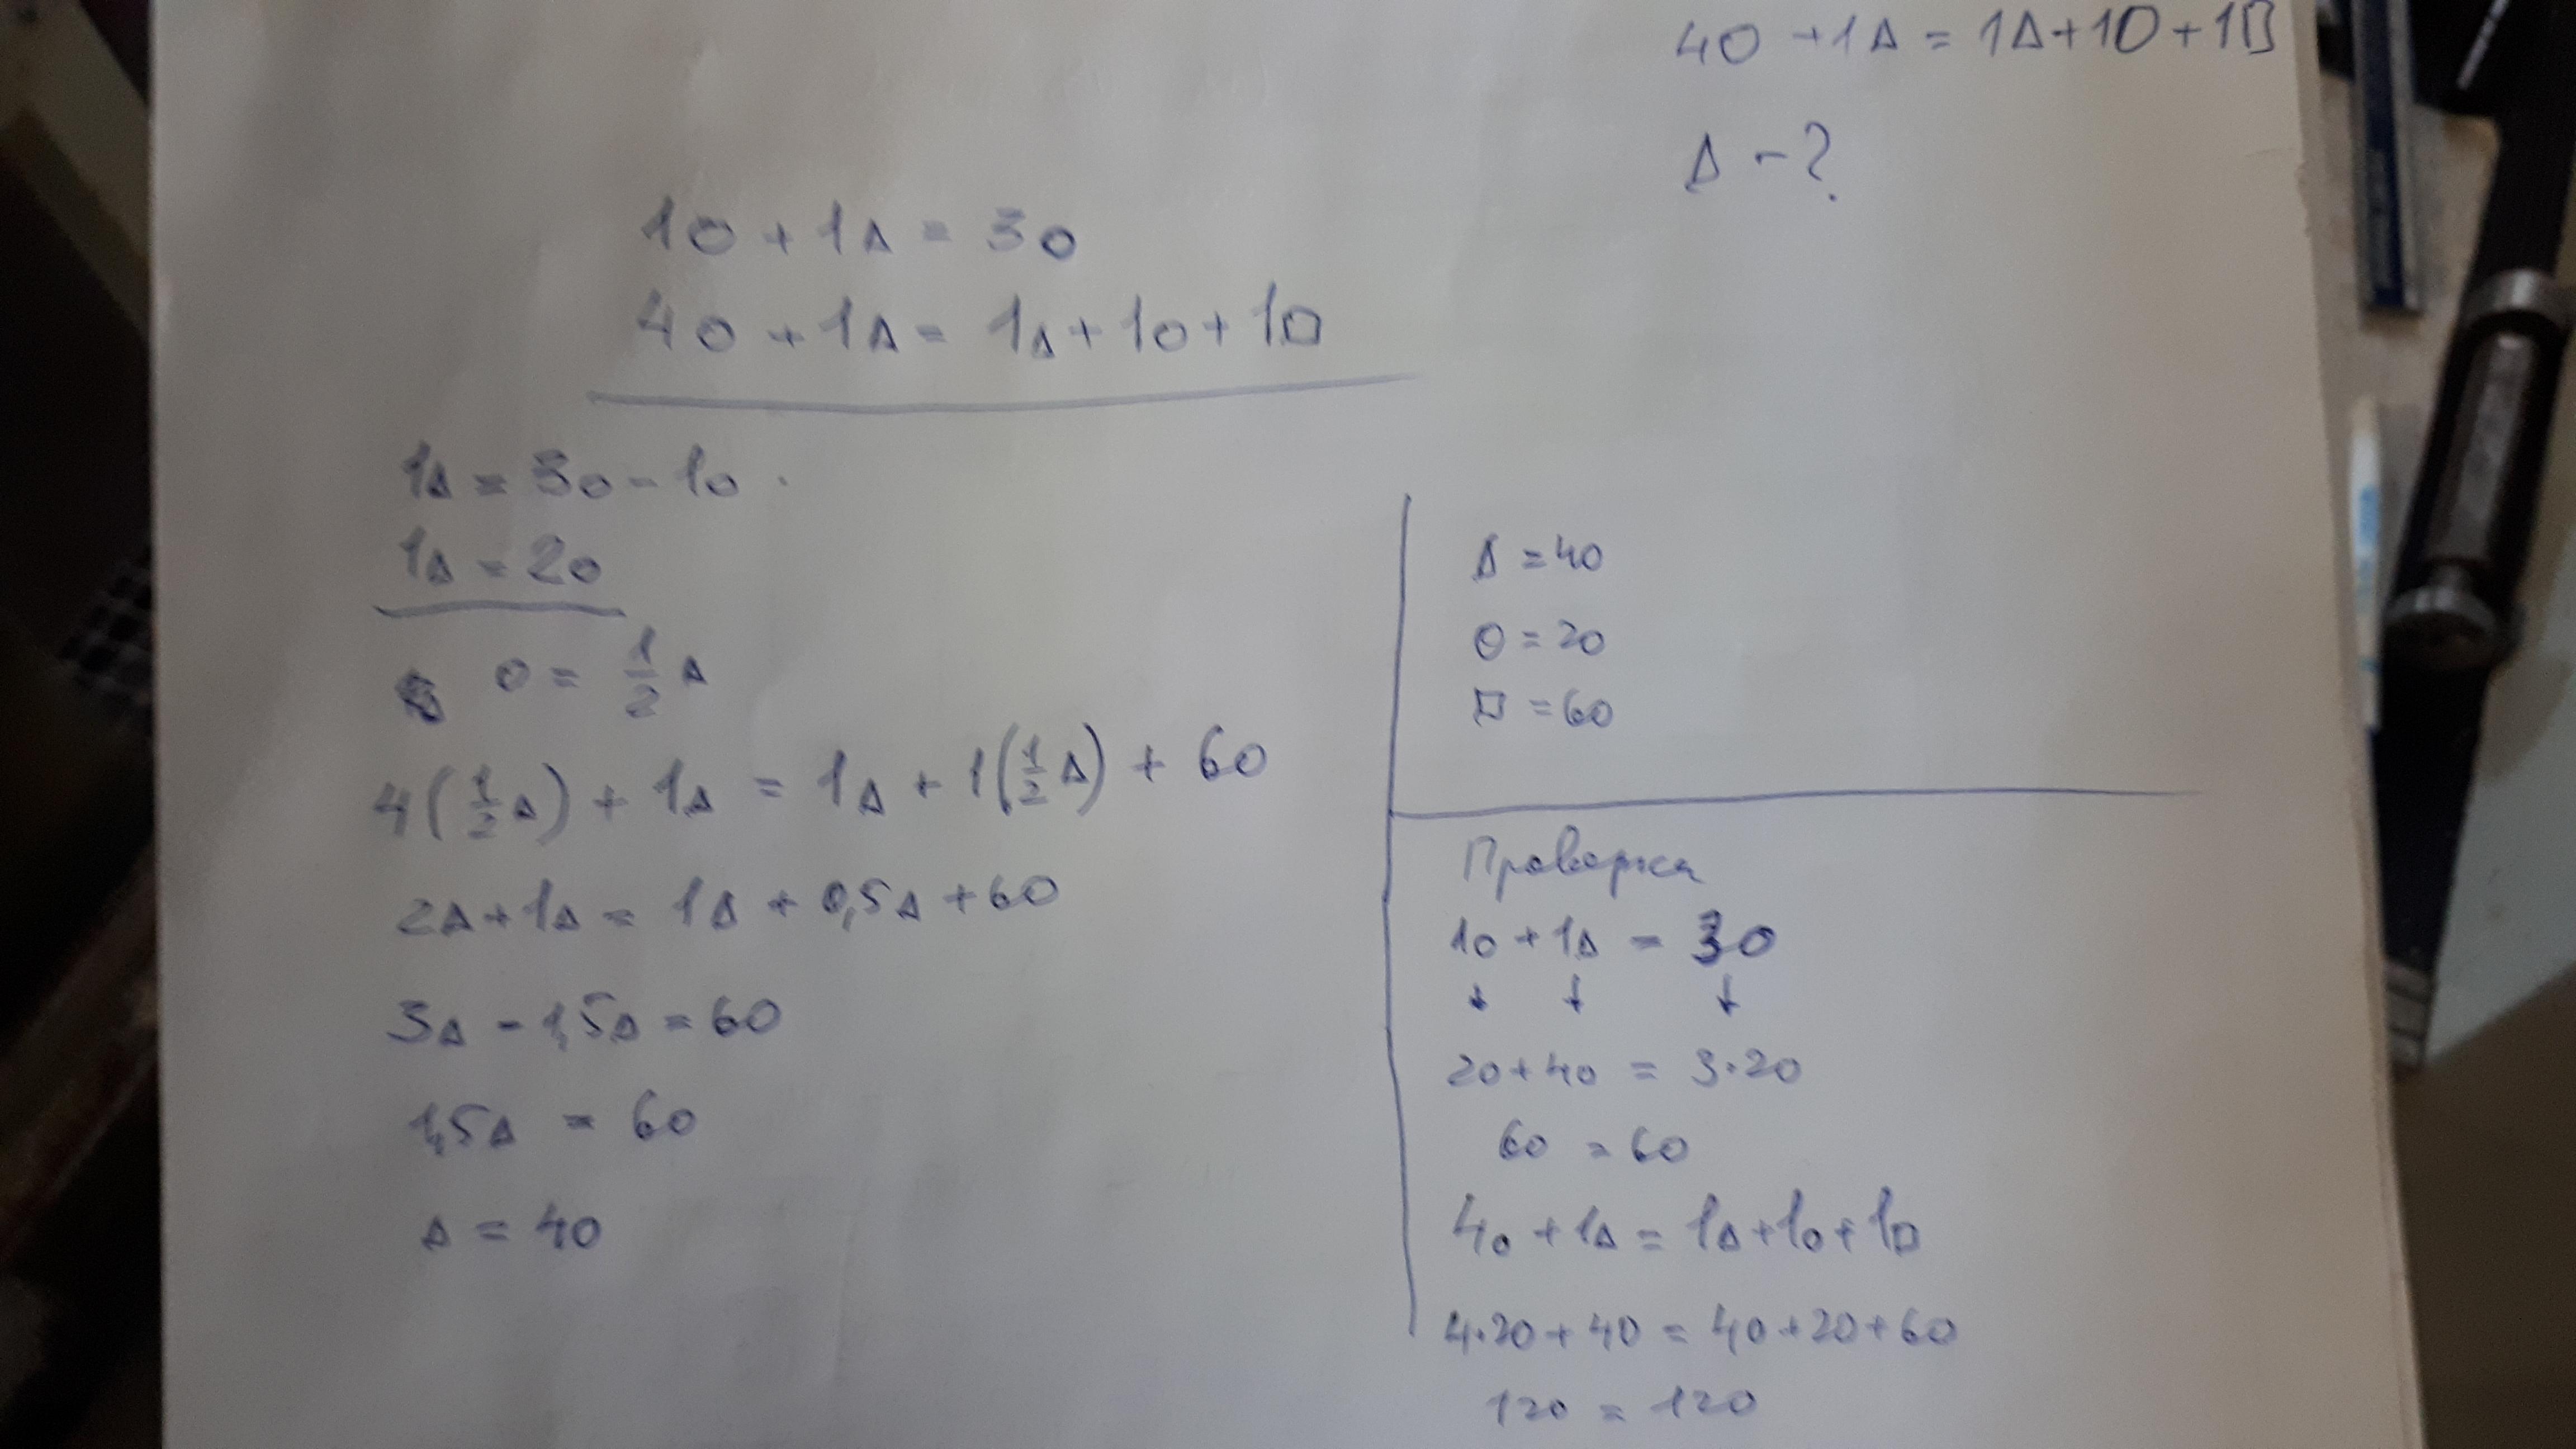 4○ + 1△ = 1△ + 1○ + 1□
△ - ?
1○ + 1△ = 3○
4○ + 1△ = 1△ + 1○ + 1□
1△ = 3○ - 1○
1△ = 2○
○ = 1/2 △
4(1/2 △) + 1△ = 1△ + 1(1/2 △) + 60
2△ + 1△ = 1△ + 0,5△ + 60
3△ - 1,5△ = 60
1,5△ = 60
△ = 40
△ = 40
○ = 20
□ = 60
Проверка
1○ + 1△ = 3○
↓ ↓ ↓
20 + 40 = 3·20
60 = 60
4○ + 1△ = 1△ + 1○ + 1□
4·20 + 40 = 40 + 20 + 60
120 = 120